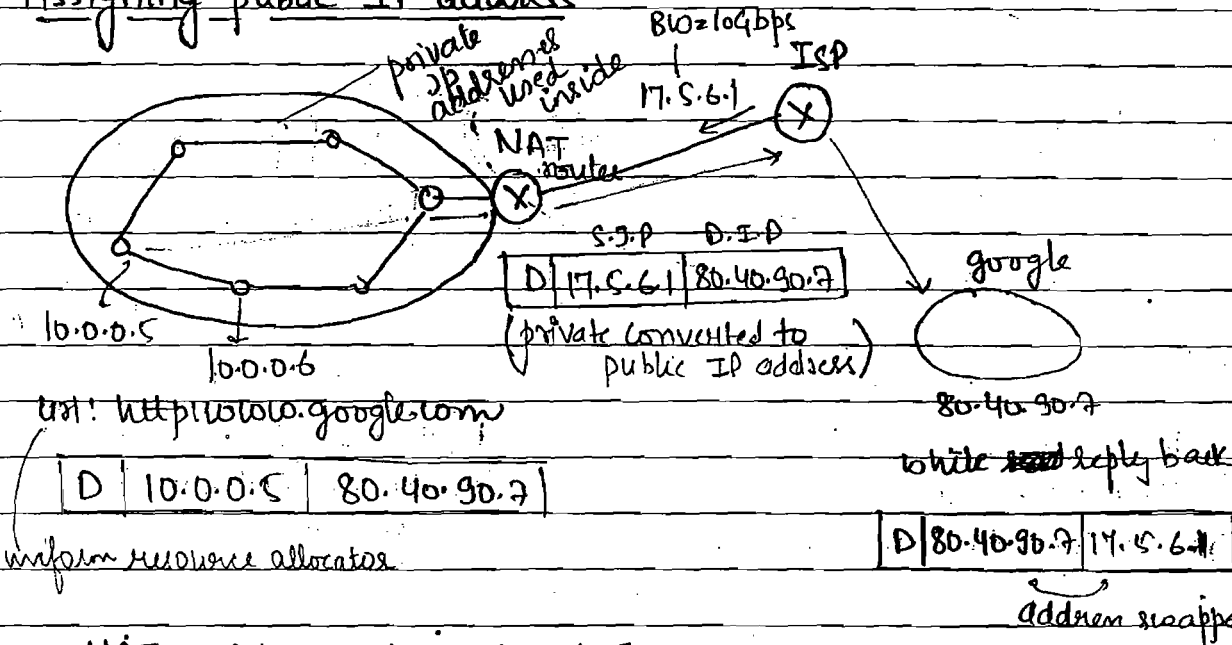 Assigning public IP address
private
IP
addresses
used
inside
BW=10Gbps
17.5.6.1
ISP
NAT
router
S.I.P D.I.P
D 17.5.6.1 80.40.90.7
(private converted to
public IP address)
google
80.40.90.7
10.0.0.5
10.0.0.6
url: http:www.google.com
D 10.0.0.5 80.40.90.7
uniform resource allocator
while reply back
D 80.40.90.7 17.5.6.1
address swappe